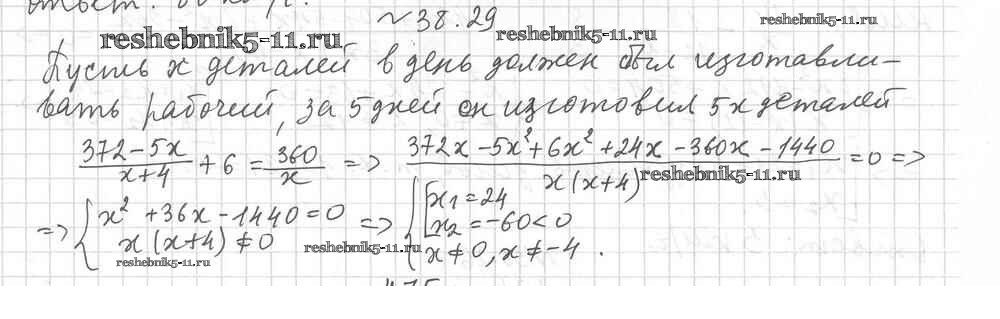 ответ:
№38.29
reshebnik5-11.ru
reshebnik5-11.ru
reshebnik5-11.ru
Пусть x деталей в день должен был изготавли-
вать рабочий, за 5 дней он изготовил 5x деталей
(372-5x)/(x+4) + 6 = 360/x => (372x-5x²+6x²+24x-360x-1440)/(x(x+4)) = 0 =>
reshebnik5-11.ru
=> { x² +36x-1440=0 => { [ x₁=24
x(x+4)≠0 x₂=-60<0
x≠0, x≠-4.
reshebnik5-11.ru
reshebnik5-11.ru